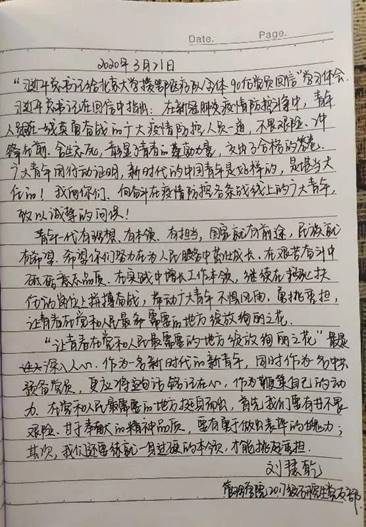 Date. Page.
2020年3月21日
“习近平总书记给北京大学援鄂医疗队全体90后党员回信”学习体会
习近平总书记在回信中指出：在新冠肺炎疫情防控斗争中，青年
人同在一线英勇奋战的广大疫情防控人员一道，不畏艰险、冲
锋在前、舍生忘死，彰显了青春的蓬勃力量，交出了合格的答卷。
广大青年用行动证明，新时代的中国青年是好样的，是堪当大
任的！我向你们、向奋斗在疫情防控各条战线上的广大青年，
致以诚挚的问候！
青年一代有理想、有本领、有担当，国家就有前途，民族就
有希望。希望你们努力在为人民服务中茁壮成长、在艰苦奋斗中
砥砺意志品质、在实践中增长工作本领，继续在救死扶
伤的岗位上拼搏奋战，带动广大青年不惧风雨、勇挑重担，
让青春在党和人民最需要的地方绽放绚丽之花。
“让青春在党和人民最需要的地方绽放绚丽之花”
深入人心。作为一名新时代的新青年，同时作为一名中共
预备党员，更应将这句话铭记在心，作为鞭策自己的动
力。在党和人民最需要的地方挺身而出，首先我们要有不畏
艰险、甘于奉献的精神品质，要有勇于做出表率的魄力；
其次，我们还要练就一身过硬的本领，才能挑起重担。
刘慧乾
管理学院2017级研究生党支部